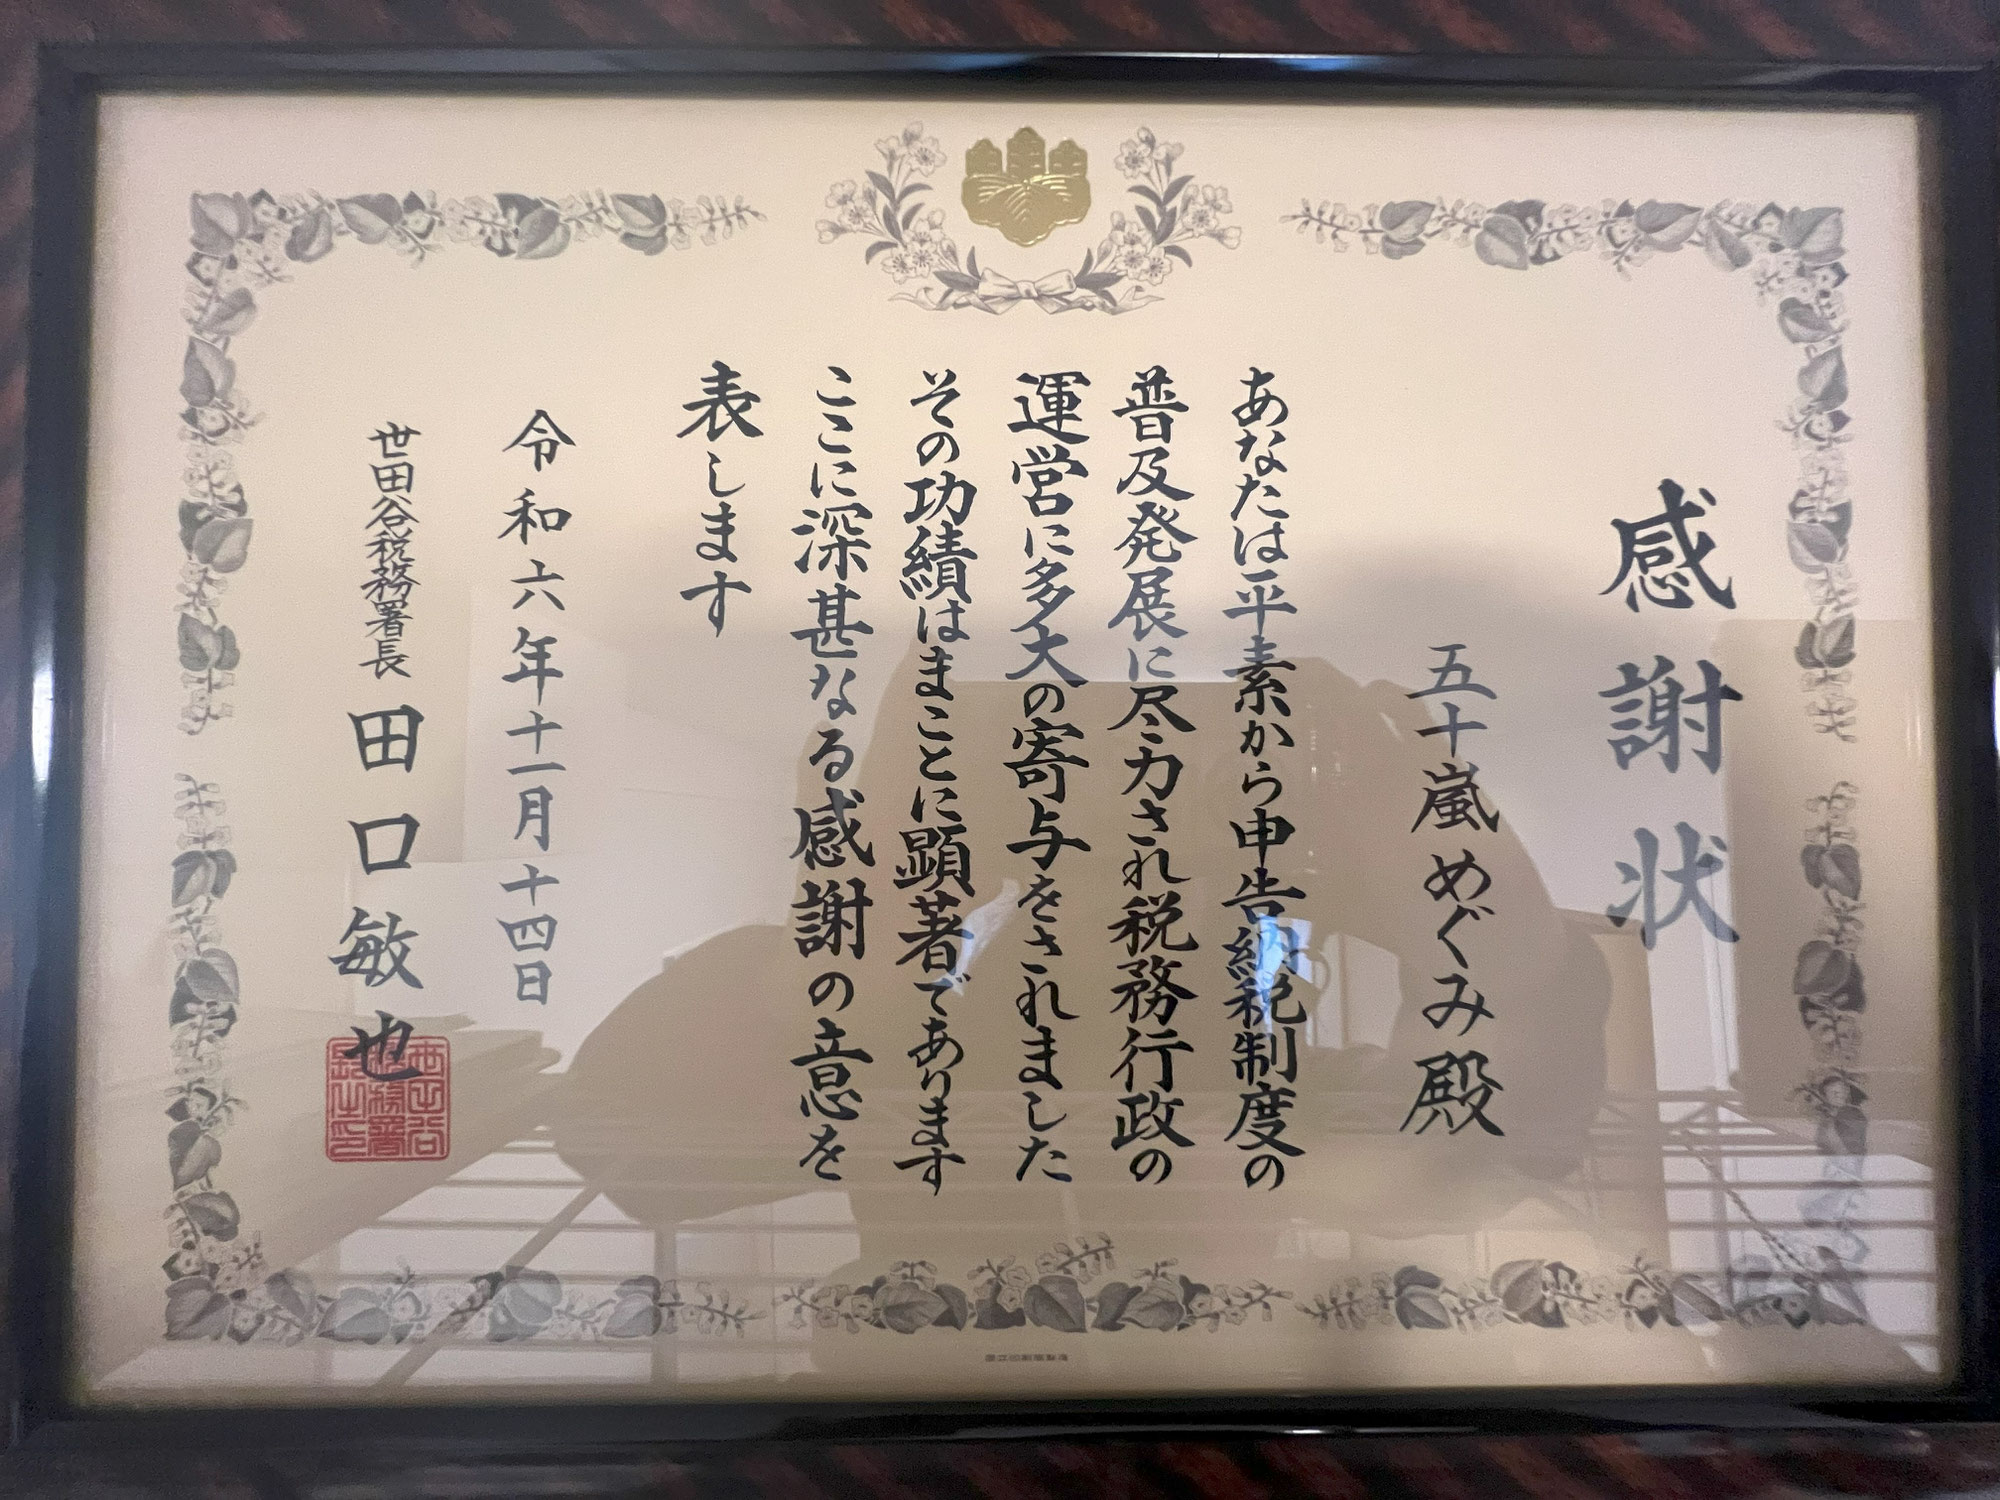 感謝状
五十嵐めぐみ殿
あなたは平素から申告納税制度の
普及発展に尽力され税務行政の
運営に多大の寄与をされました
その功績はまことに顕著であります
ここに深甚なる感謝の意を
表します
令和六年十一月十四日
世田谷税務署長 田口敏也